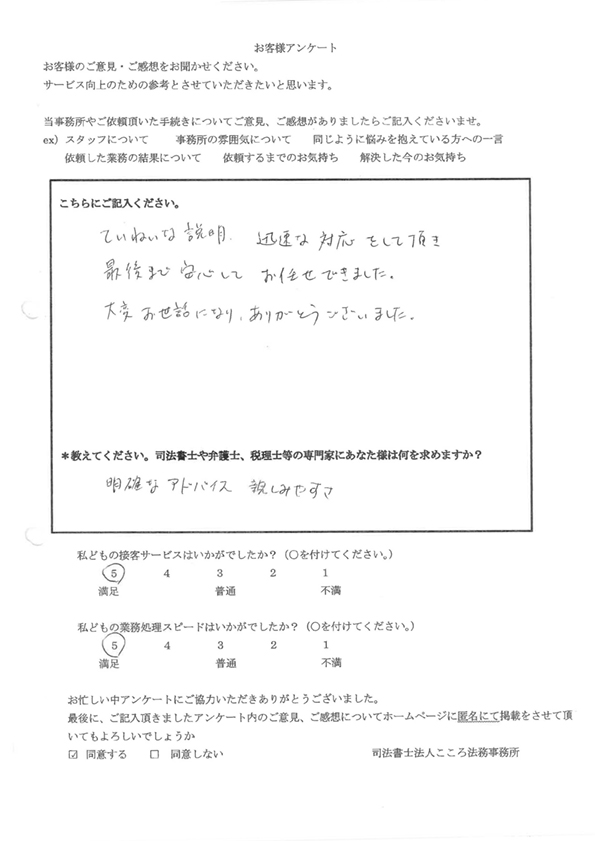 お客様アンケート
お客様のご意見・ご感想をお聞かせください。
サービス向上のための参考とさせていただきたいと思います。
当事務所やご依頼頂いた手続きについてご意見、ご感想がありましたらご記入くださいませ。
ex）スタッフについて　事務所の雰囲気について　同じように悩みを抱えている方への一言
依頼した業務の結果について　依頼するまでのお気持ち　解決した今のお気持ち
こちらにご記入ください。
ていねいな説明、迅速な対応をして頂き
最後まで安心してお任せできました。
大変お世話になり、ありがとうございました。
＊教えてください。司法書士や弁護士、税理士等の専門家にあなた様は何を求めますか？
明確なアドバイス 親しみやすさ
私どもの接客サービスはいかがでしたか？（○を付けてください。）
5 4 3 2 1
満足 普通 不満
私どもの業務処理スピードはいかがでしたか？（○を付けてください。）
5 4 3 2 1
満足 普通 不満
お忙しい中アンケートにご協力いただきありがとうございました。
最後に、ご記入頂きましたアンケート内のご意見、ご感想についてホームページに匿名にて掲載をさせて頂
いてもよろしいでしょうか
☑ 同意する　□ 同意しない　司法書士法人こころ法務事務所